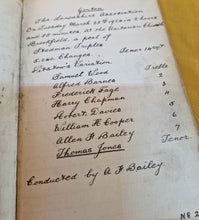 Gorton
The Lancashire Association
On Saturday March 23rd 1912 in 2 hours
and 55 minutes at the Unitarian Church
Brookfield, a peal of
Stedman Triples
5,040 Changes
Thurstan's Variation Tenor 14 cwt
Samuel Wood Treble
Alfred Barnes 2
Frederick Page 3
Harry Chapman 4
Robert Davies 5
William H Cooper 6
Allen F Bailey 7
Thomas Jones Tenor
Conducted by A F Bailey.
No 2